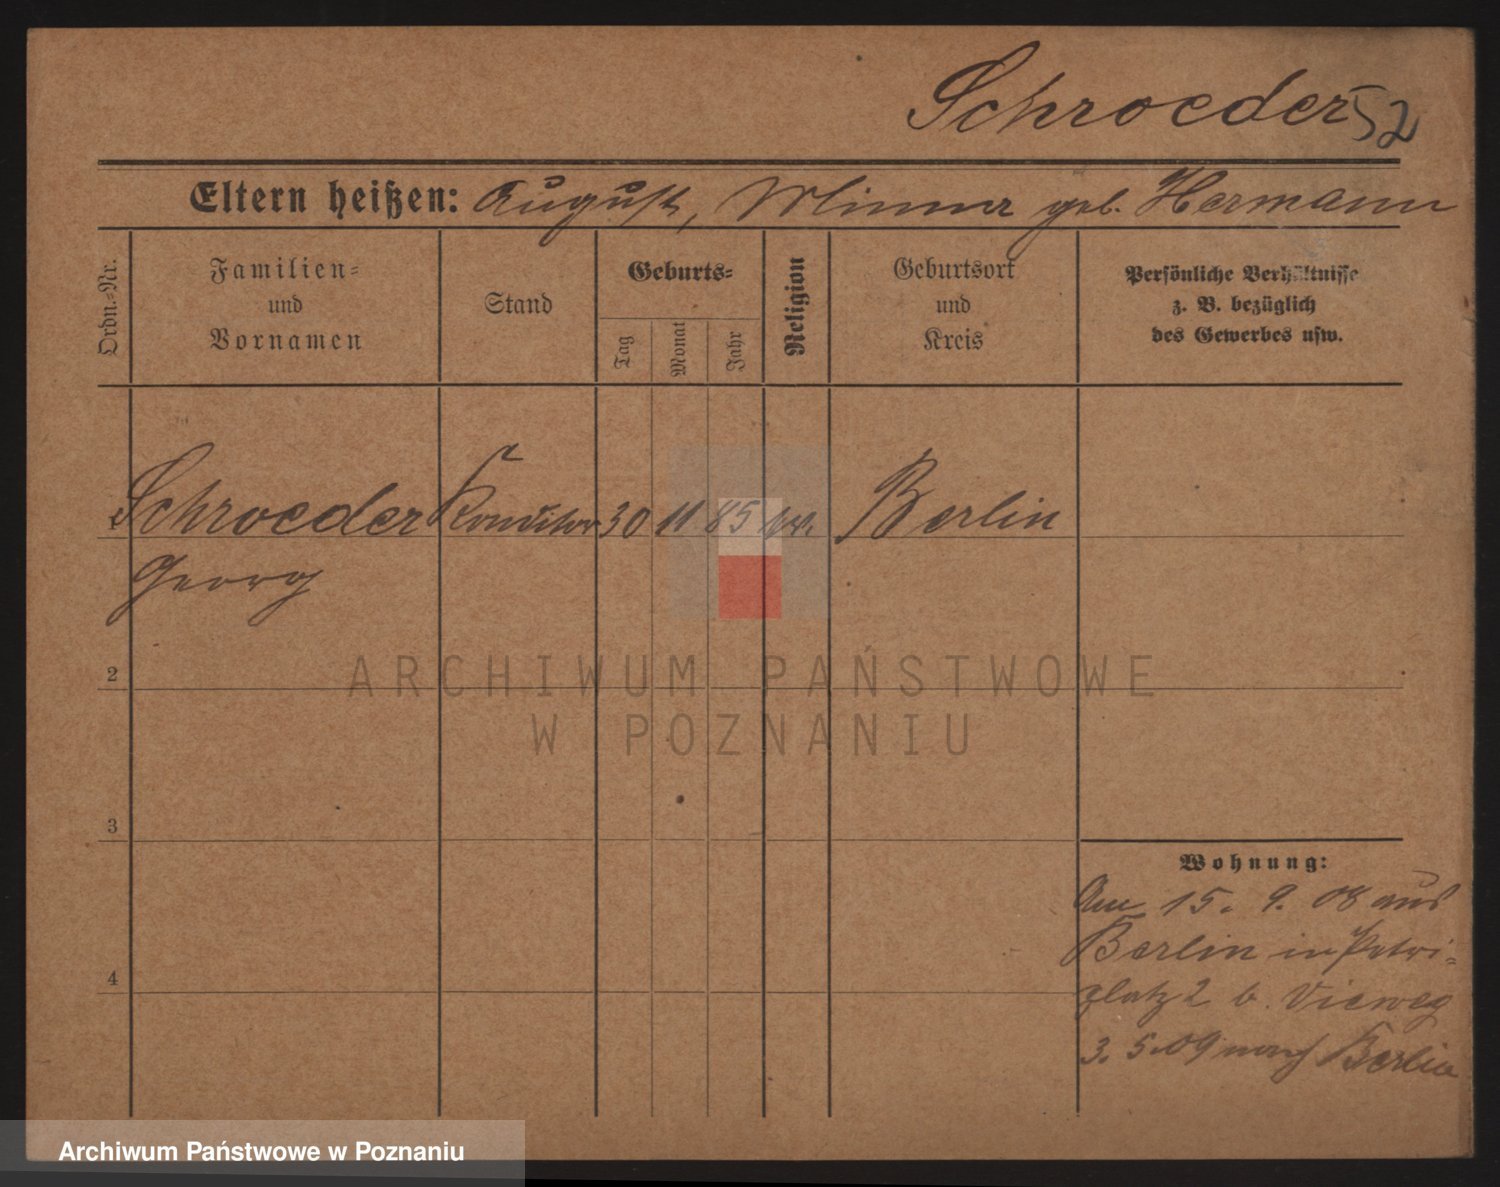 Schroeder 52
Eltern heißen: August, Minna geb. Hermann
Ordn.-Nr.
Familien-
und
Vornamen
Stand
Geburts-
Tag
Monat
Jahr
Religion
Geburtsort
und
Kreis
Persönliche Verhältnisse
z. B. bezüglich
des Gewerbes usw.
1 Schroeder Konditor 30 11 85 ev. Berlin
Georg
2
3
4
Wohnung:
Am 15. 9. 08 aus
Berlin in Petri-
platz 2 b. Vieweg
3. 5. 09 nach Berlin
ARCHIWUM PAŃSTWOWE
W POZNANIU
Archiwum Państwowe w Poznaniu